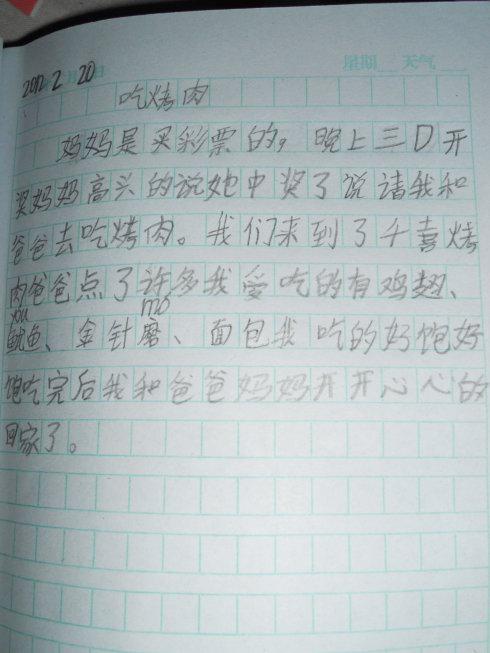 2012 2 20日 星期 天气
吃烤肉
妈妈是买彩票的，晚上三D开
奖妈妈高兴的说她中奖了说请我和
爸爸去吃烤肉。我们来到了千喜烤
肉爸爸点了许多我爱吃的有鸡翅、
you mo
鱿鱼、金针磨、面包我吃的好饱好
饱吃完后我和爸爸妈妈开开心心的
回家了。